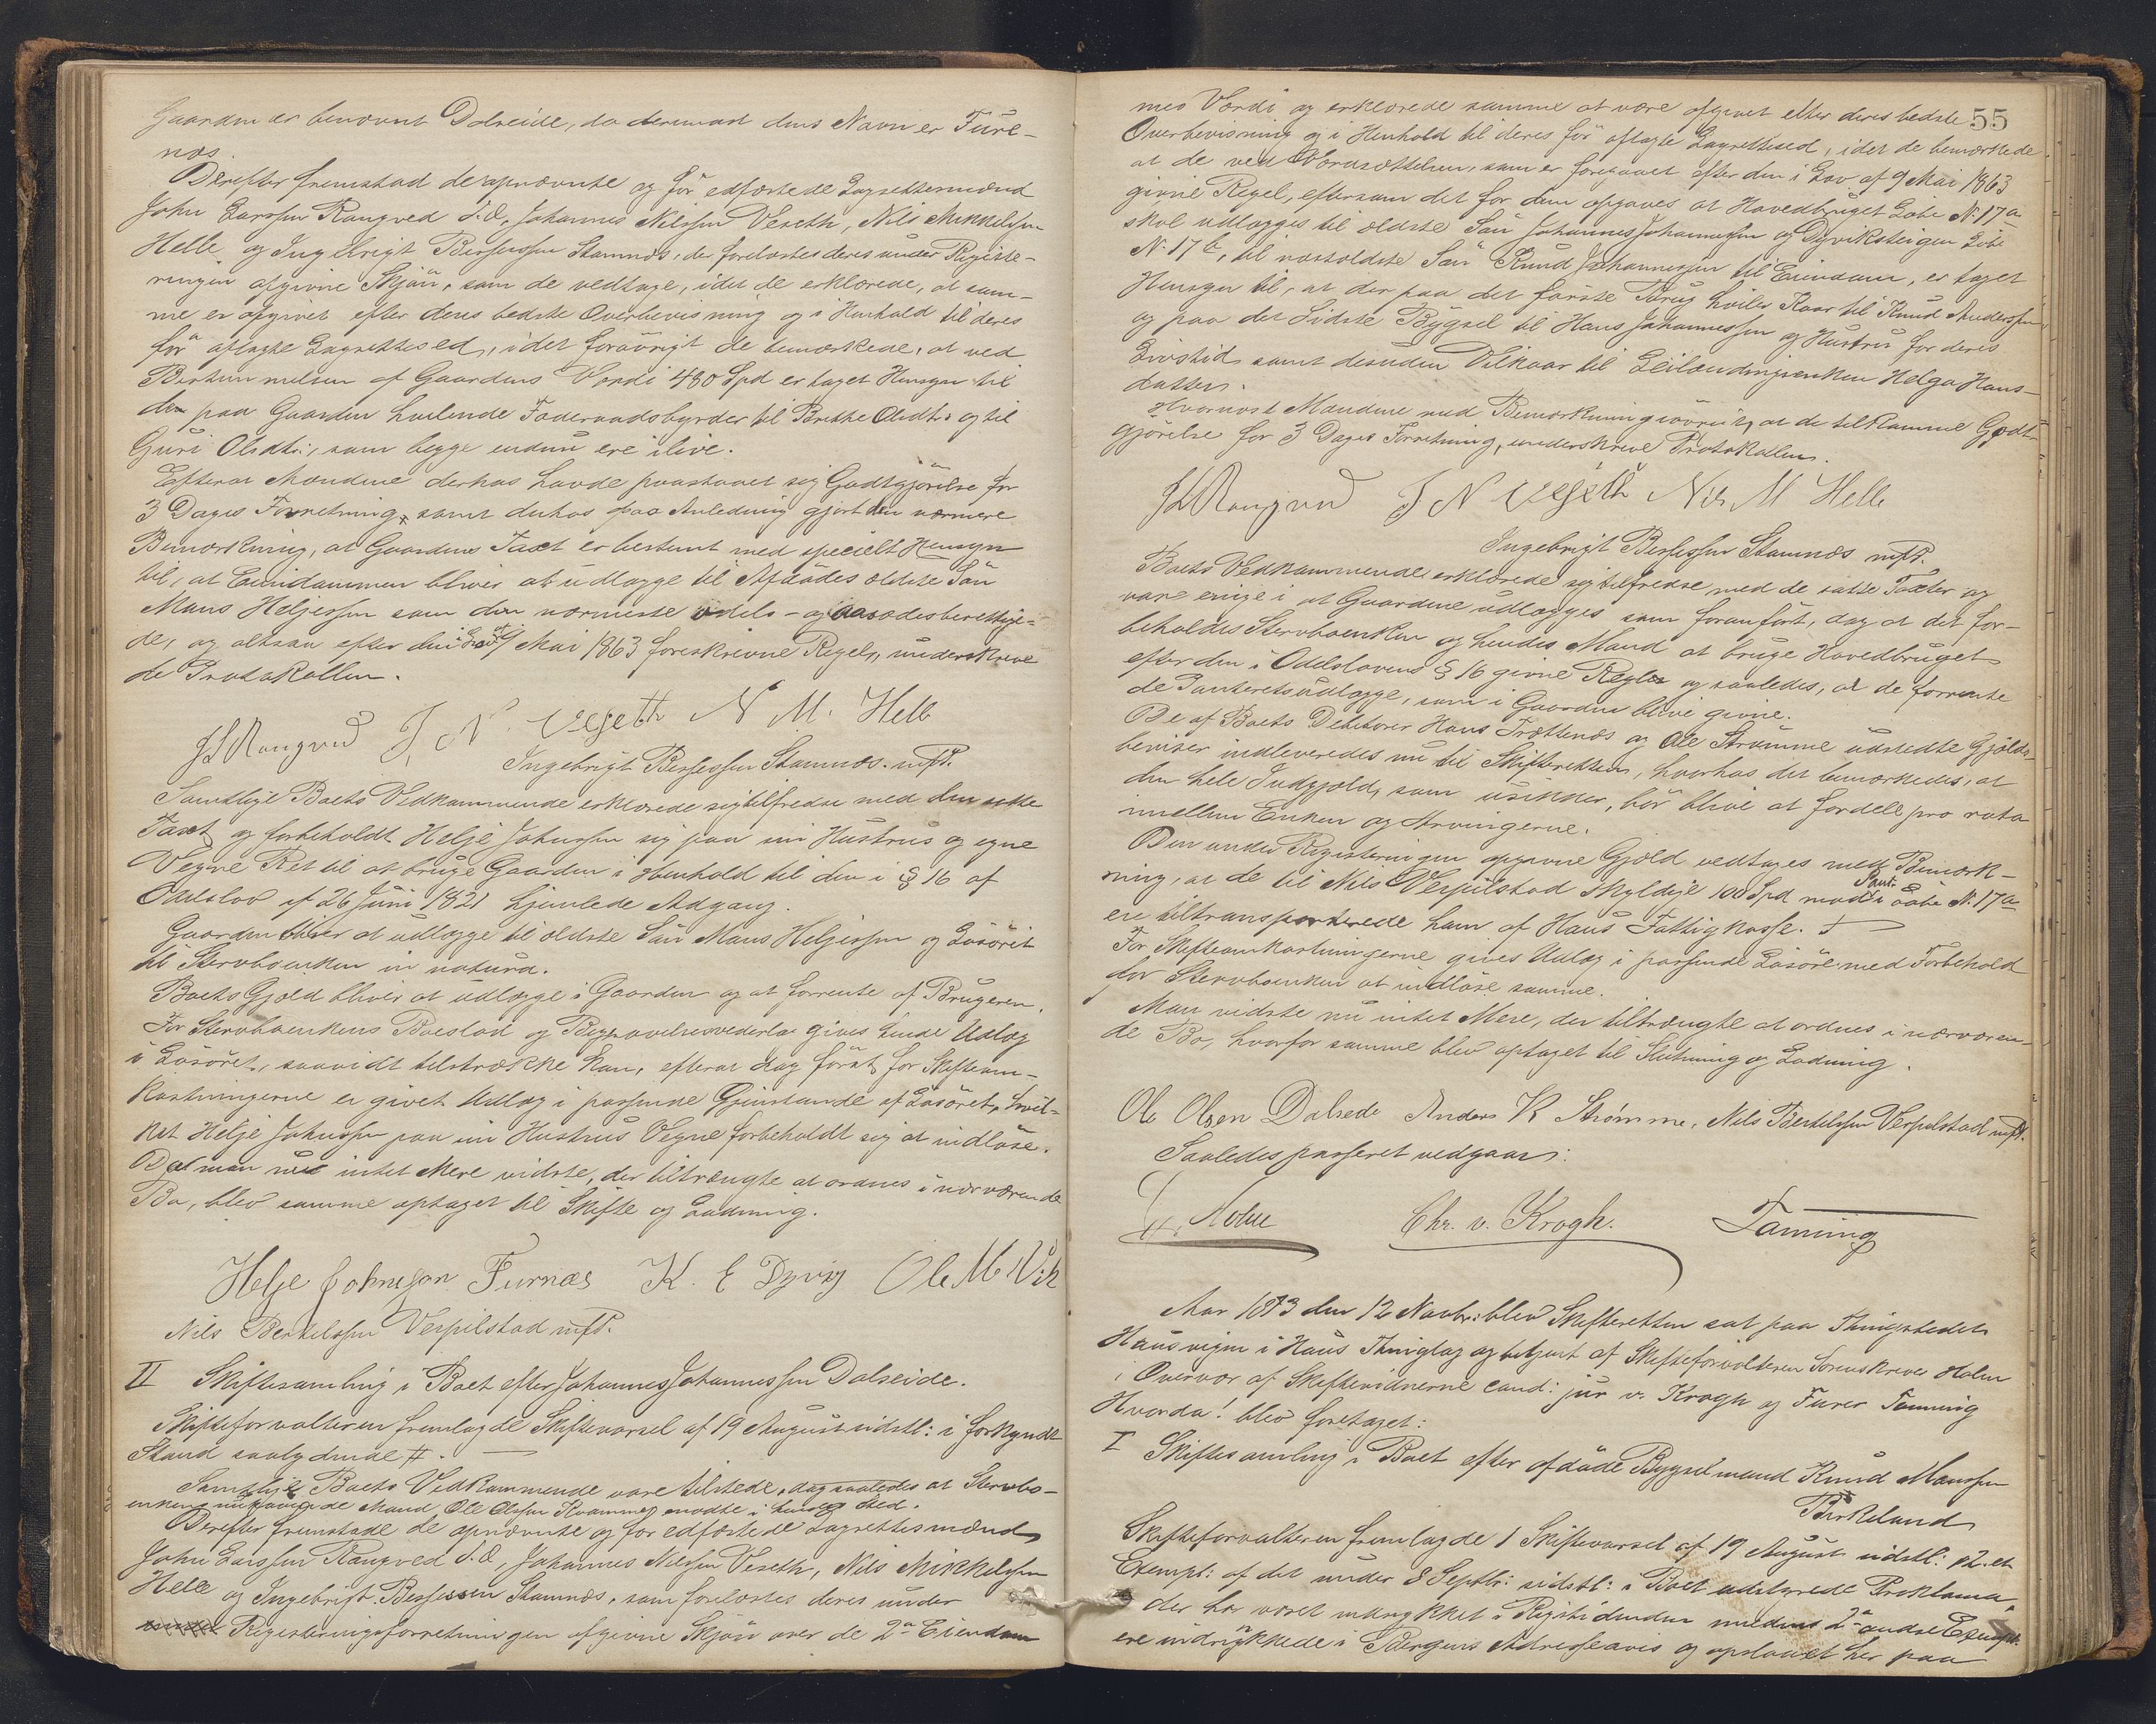 Gaarden er benævnt Dalseide, da derimod dens Navn er Fure-
næs.
Derefter fremstod de opnævnte og før edfæstede Lagrettesmænd
John Larssen Rangved d.æ., Johannes Nilssen Veseth, Nils Mikkelsen
Helle og Ingebrigt Bersessen Stamnæs, der forelæstes deres under Registe-
ringen afgivne Skjøn, som de vedtage, idet de erklærede, at sam-
me er afgivet efter deres bedste Overbevisning og i Henhold til deres
før aflagte Lagrettesed, idet forøvrigt de bemærkede, at ved
Bestemmelsen af Gaardens Værdi 480 Spd er taget Hensyn til
den paa Gaarden hvilende Føderaadsbyrder til Brithe Olsdtr og til
Guri Olsdtr:, som begge endnu ere ilive.
Efterat Mændene derhos havde paastaaet sig Godtgjørelse for
3 Dages Forretning, samt derhos paa Anledning gjort den nærmere
Bemærkning, at Gaardens Taxt er bestemt med specielt Hensyn
til, at Eiendommen bliver at udlægge til Afdødes ældste Søn
Mons Heljessen som den nærmeste odels- og aasædesberettige-
de, og altsaa efter den i Lov af 9 Mai 1863 foreskrevne Regel, underskreve
de Protokollen.
J L Rangved J. N. Vesseth N M. Helle
Ingebrigt Bersessen Stamnæs. m.f.P.
Samtlige Boets Vedkommende erklærede sig tilfredse med den satte
Taxt og forbeholdt Helje Johnssen sig paa sin Hustrus og egne
Vegne Ret til at bruge Gaarden i Henhold til den i § 16 af
Odelslov af 26 Juni 1821 hjemlede Adgang.
Gaarden bliver at udlægge til ældste Søn Mons Heljessen og Løsøret
til Stervboenken in natura.
Boets Gjæld bliver at udlægge i Gaarden og at forrente af Brugeren.
For Stervboenkens Boeslod og Begravelsesvederlag gives hende Udlæg
i Løsøret, saavidt tilstrække kan, efterat dog først for Skifteom-
kostningerne er givet Udlæg i passende Gjenstande af Løsøret, hvil-
ket Helje Johnssen paa sin Hustrus Vegne forbeholdt sig at indløse.
Da man nu intet Mere vidste, der tiltrængte at ordnes i nærværende
Bo, blev samme optaget til Skifte og Lodning.
Helje Johnesen Furnæs K. E Dyvig Ole M Vik
Nils Bertelssen Verpilstad m.f.P.
II Skiftesamling i Boet efter Johannes Johannessen Dalseide.
Skifteforvalteren fremlagde Skiftevarsel af 19 August sidstl: i forkyndt
Stand saalydende #.
Samtlige Boets Vedkommende vare tilstede, dog saaledes at Stervbo-
enkens nuhavende Mand Ole Olssen Kvamme mødte i hendes Sted.
Derefter fremstode de opnævnte og før edfæstede Lagrettesmænd
John Larssen Rangved d.æ, Johannes Nilssen Veseth, Nils Mikkelsen
Helle og Ingebrigt Bersessen Stamnæs, som forelæstes deres under
Registeringsforretningen afgivne Skjøn over de 2de Eiendom
55
mes Værdi og erklærede samme at være afgivet efter deres bedste
Overbevisning og i Henhold til deres før aflagte Lagrettesed, idet de bemærkede
at de ved Værdsættelsen, som er foregaaet efter den i Lov af 9 Mai 1863
givne Regel, eftersom det for dem opgaves at Hovedbruget Løbe No 17a
skal udlægges til ældste Søn Johannes Johannessen og Dyviksteigen Løbe
No 17b, til næstældste Søn Knud Johannessen til Eiendom, er taget
Hensyn til, at der paa det første Brug hviler Kaar til Knud Anderssen
og paa det Sidste Bygsel til Hans Johannessen og Hustru for deres
Livstid samt desuden Vilkaar til Leilændingsenken Helga Hans-
datter.
Hvornæst Mændene med Bemærkning iøvrigt, at de tilkomme Godt-
gjørelse for 3 Dages Forretning, underskreve Protokollen.
J L Rangved J N Vesseth Nils M Helle
Ingebrigt Bersessen Stamnæs m.f.P.
Boets Vedkommende erklærede sig tilfredse med de satte Taxter og
vare enige i at Gaardene udlægges som foranført, dog at det for-
beholdes Stervboenken og hendes Mand at bruge Hovedbruget
efter den i Odelslovens § 16 givne Regler og saaledes, at de forrente
de Panteretsudlægge, som i Gaarden blive givne.
De af Boets Debitorer Hans Trættenæs og Ole Strømme udstedte Gjælds-
beviser indleveredes nu til Skifteretten, hvorhos det bemærkedes, at
den hele Indgjæld, som usikker, bør blive at fordele pro rata
mellem Enken og Arvingerne.
Den under Registeringen opgivne Gjæld vedtages med Bemærk-
ning, at de til Nils Verpilstad skyldige 100 Spd mod Pant i Løbe No 17a
ere tiltransporterede ham af Haus Fattigkasse.
For Skifteomkostningerne gives Udlæg i passende Løsøre med Forbehold
for Stervboenken at indløse samme.
Man vidste nu intet Mere, der tiltrængte at ordnes i nærværen-
de Bo, hvorfor samme blev optaget til Slutning og Lodning.
Ole Olsen Dalsede Anders K Strømme, Nils Bertelssen Verpilstad m.f.P.
Saaledes passeret vedgaar:
Holm Chr. v. Krogh. Tanning
Aar 1873 den 12 Novbr: blev Skifteretten sat paa Thingstedet
Hausvigen i Haus Thinglag og betjent af Skifteforvalteren Sorenskriver Holm
i Overvær af Skiftevidnerne cand: jur v. Krogh og Furer Tanning
Hvorda! blev foretaget:
I Skiftesamling i Boet efter afdøde Bygselmand Knud Monssen
Birkeland
Skifteforvalteren fremlagde 1 Skiftevarsel af 19 August sidstl: 2. et
Exempl: af det under 8 Septbr: sidstl: i Boet udstyrede Proklama,
der har været indrykket i Rigstidenden medens 2de andre Exempl.
ere indrykkede i Bergens Adresseavis og opslaaet her paa